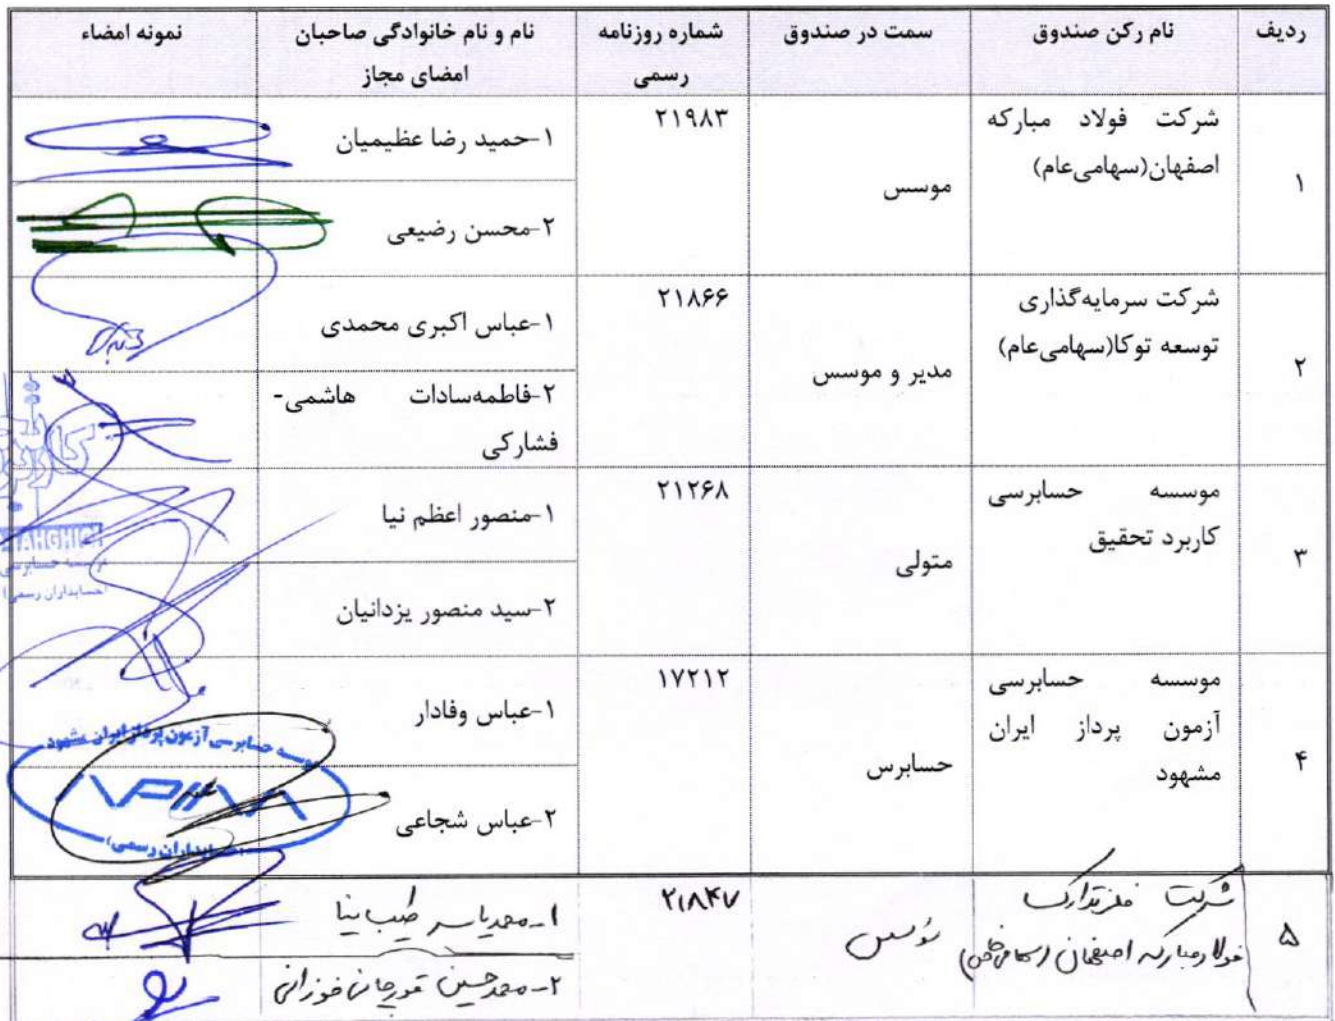 ردیف
نام رکن صندوق
سمت در صندوق
شماره روزنامه
رسمی
نام و نام خانوادگی صاحبان
امضای مجاز
نمونه امضاء
۱
شرکت فولاد مبارکه
اصفهان(سهامی‌عام)
موسس
۲۱۹۸۳
۱-حمید رضا عظیمیان
۲-محسن رضیعی
۲
شرکت سرمایه‌گذاری
توسعه توکا(سهامی‌عام)
مدیر و موسس
۲۱۸۶۶
۱-عباس اکبری محمدی
۲-فاطمه‌سادات هاشمی-
فشارکی
۳
موسسه حسابرسی
کاربرد تحقیق
متولی
۲۱۲۶۸
۱-منصور اعظم نیا
۲-سید منصور یزدانیان
۴
موسسه حسابرسی
آزمون پرداز ایران
مشهود
حسابرس
۱۷۲۱۲
۱-عباس وفادار
۲-عباس شجاعی
موسسه حسابرسی آزمون پرداز ایران مشهود
(حسابداران رسمی)
موسسه حسابرسی
(حسابداران رسمی)
۵
شرکت فلز تدارک
فولاد مبارکه اصفهان (سهامی خاص)
موسس
۲۱۸۴۷
۱-محمدیاسر طیب نیا
۲-محمدحسین قورچانی خوزانی